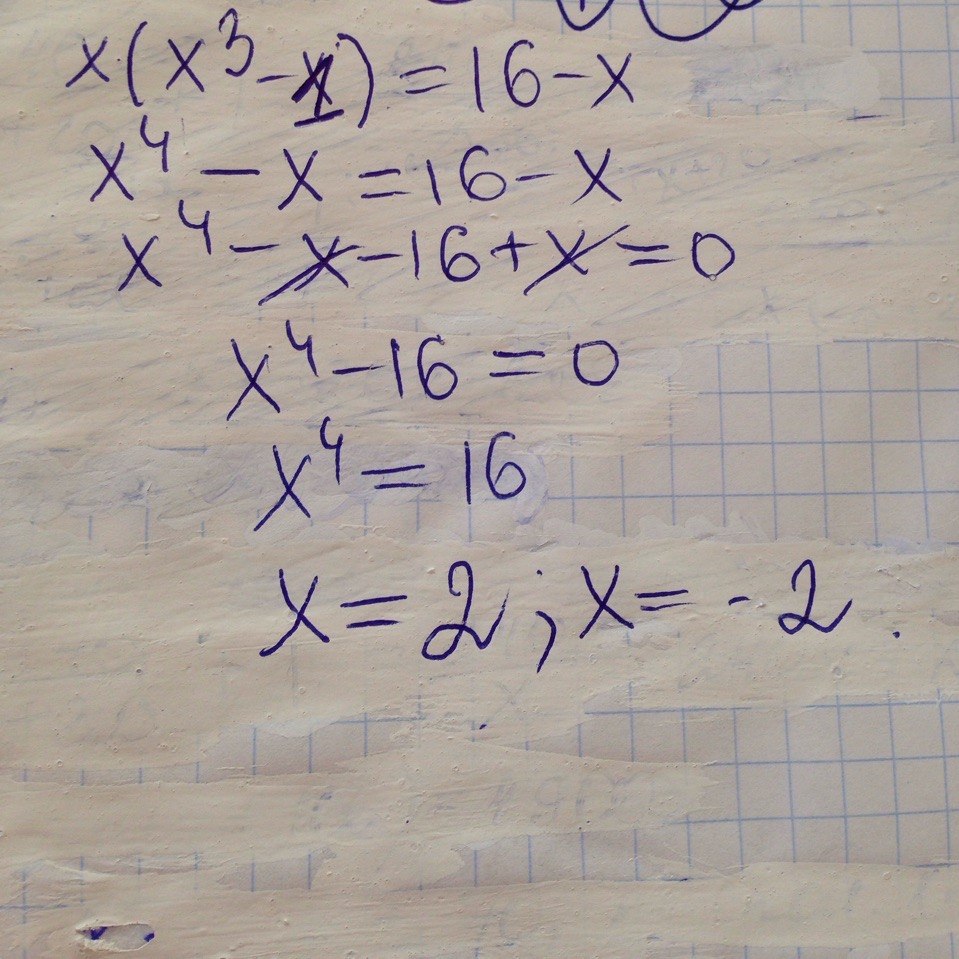 x(x³-1)=16-x
x⁴-x=16-x
x⁴-x-16+x=0
x⁴-16=0
x⁴=16
x=2; x=-2.